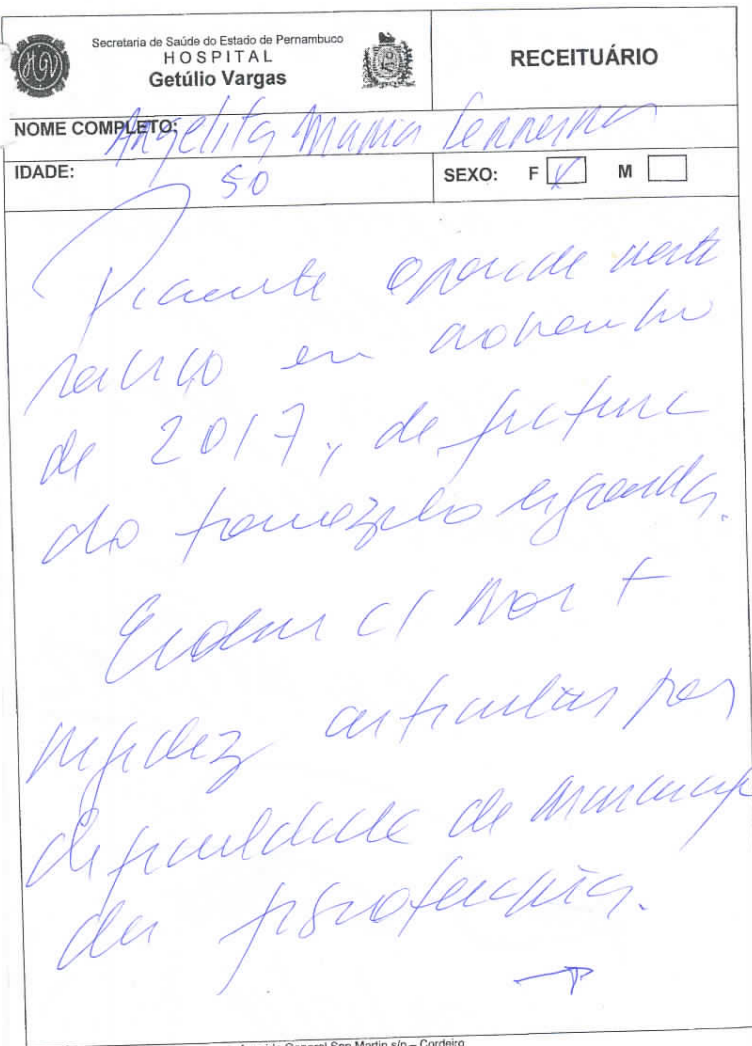 Secretaria de Saúde do Estado de Pernambuco
HOSPITAL
Getúlio Vargas
RECEITUÁRIO
NOME COMPLETO: Angelita Maria Ferreira
IDADE: 50
SEXO: F X M
Paciente operada neste
serviço em novembro
de 2017, de fratura
do tornozelo esquerdo.
Evoluiu c/ dor +
rigidez articular por
dificuldade de marcação
da fisioterapia.
→
Avenida General San Martin s/n – Cordeiro